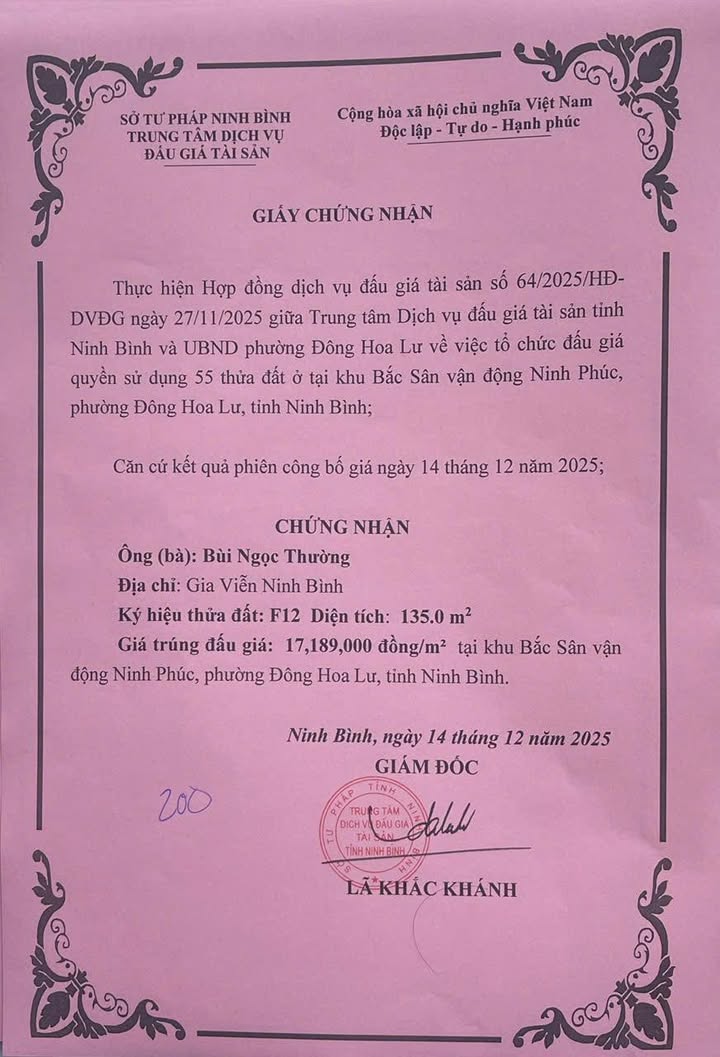 SỞ TƯ PHÁP NINH BÌNH
TRUNG TÂM DỊCH VỤ
ĐẤU GIÁ TÀI SẢN
Cộng hòa xã hội chủ nghĩa Việt Nam
Độc lập - Tự do - Hạnh phúc
GIẤY CHỨNG NHẬN
Thực hiện Hợp đồng dịch vụ đấu giá tài sản số 64/2025/HĐ-
DVĐG ngày 27/11/2025 giữa Trung tâm Dịch vụ đấu giá tài sản tỉnh
Ninh Bình và UBND phường Đông Hoa Lư về việc tổ chức đấu giá
quyền sử dụng 55 thửa đất ở tại khu Bắc Sân vận động Ninh Phúc,
phường Đông Hoa Lư, tỉnh Ninh Bình;
Căn cứ kết quả phiên công bố giá ngày 14 tháng 12 năm 2025;
CHỨNG NHẬN
Ông (bà): Bùi Ngọc Thường
Địa chỉ: Gia Viễn Ninh Bình
Ký hiệu thửa đất: F12 Diện tích: 135.0 m²
Giá trúng đấu giá: 17,189,000 đồng/m² tại khu Bắc Sân vận
động Ninh Phúc, phường Đông Hoa Lư, tỉnh Ninh Bình.
Ninh Bình, ngày 14 tháng 12 năm 2025
GIÁM ĐỐC
200
SỞ TƯ PHÁP TỈNH NINH BÌNH
TRUNG TÂM
DỊCH VỤ ĐẤU GIÁ
TÀI SẢN
TỈNH NINH BÌNH
LÃ KHẮC KHÁNH